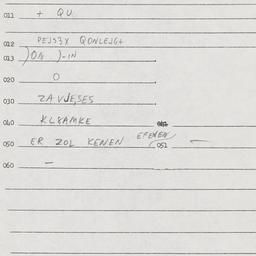 011 + QU
012 PEJSZY QONLEJG+
013 )ON )-IN
020 O
030 ZAVJESES
040 KLYAMKE
050 ER ZOL KENEN EFENEN
051 —
060 —